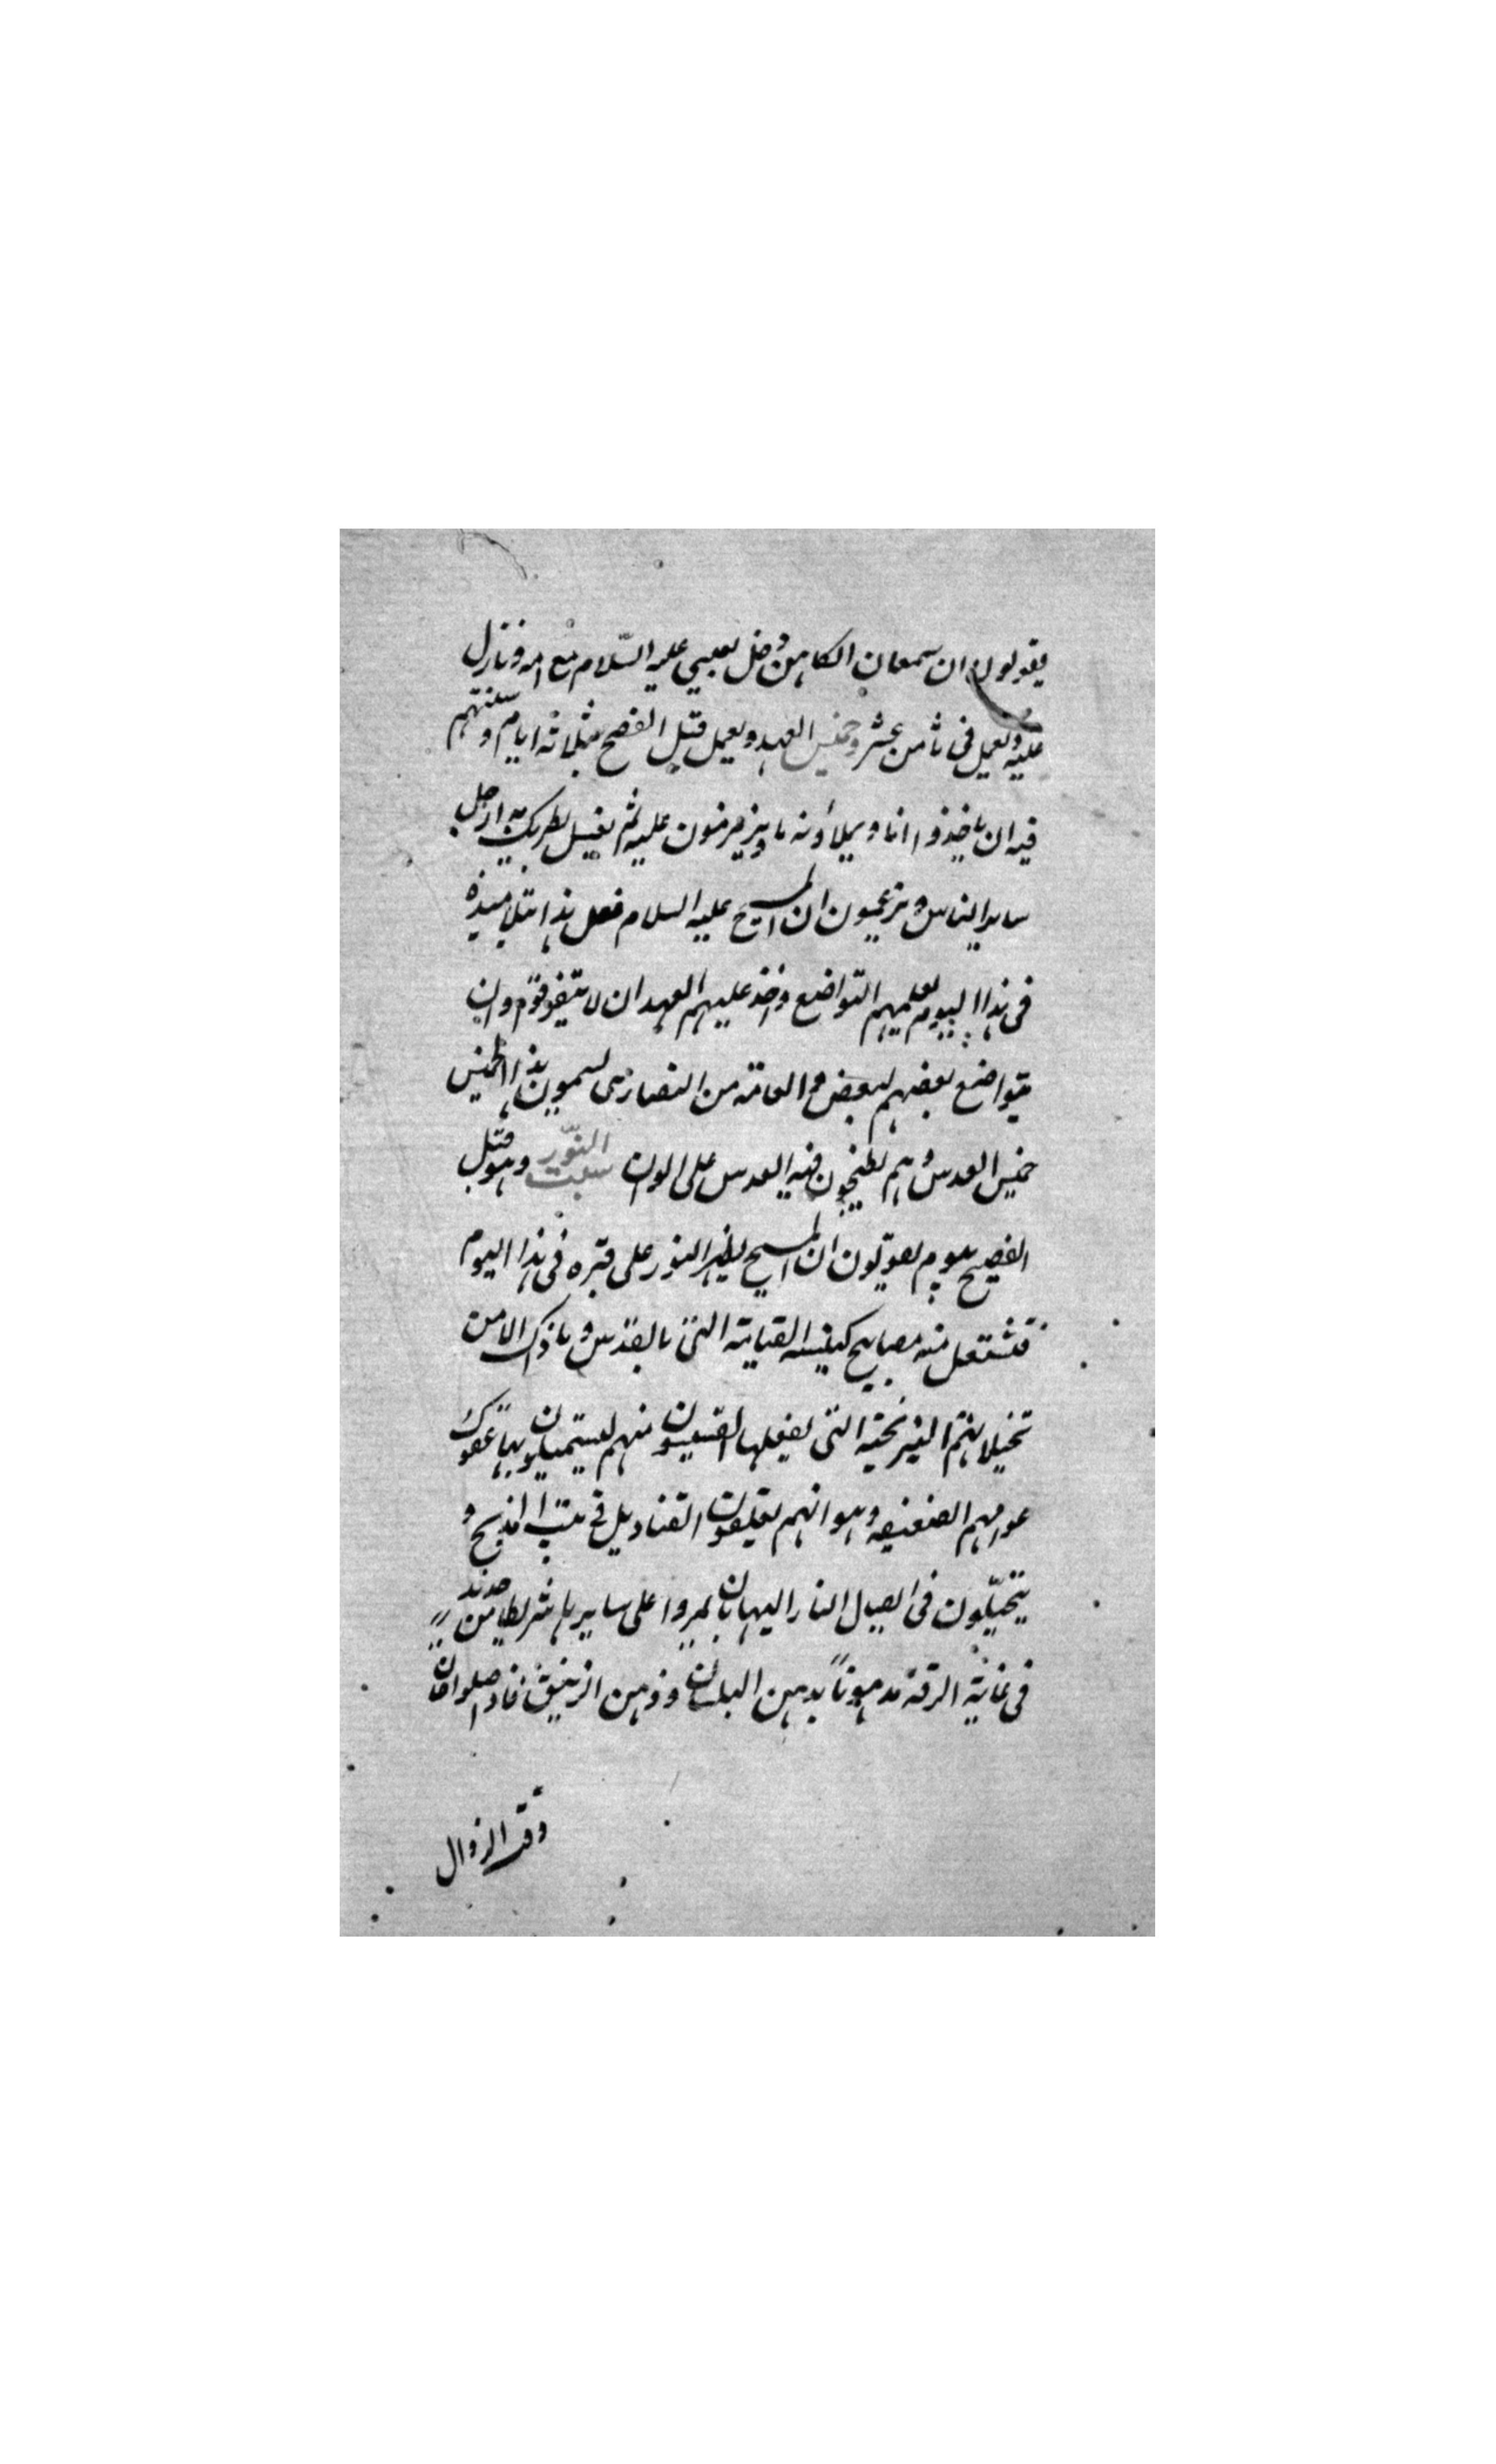 يقولون ان سمعان الكاهن دخل بعيسى عليه السّلام مع امه وبارك
عليه ويعمل فى ثامن عشر وخميس العهد ويعمل قبل الفصح بثلاثة ايام وسنتهم
فيه ان ياخذوا اناء ويملأونه ماء ويزمزمون عليه ثم يغسل بطريك به ارجل
ساير الناس ويزعمون ان المسيح عليه السلام فعل هذا بتلاميذه
فى هذا اليوم يعلمهم التواضع واخذ عليهم العهد ان لا يتفرقوا وان
يتواضع بعضهم لبعض والعامة من النصارى يسمون هذا الخميس
خميس العدس وهم يطبخون فيه العدس على الوان سبت النّور وهو قبل
الفصح بيوم يقولون ان المسيح يظهر النور على قبره فى هذا اليوم
فتشتعل منه مصابيح كنيسة القيامة التى بالقدس وما ذاك الا من
تخيلاتهم النيرنجية التى يفعلها القسيسون منهم ليستميلون بها عقول
عوامهم الضعيفه وهو انهم يعلقون القناديل فى بيت المذبح و
يتحيّلون فى ايصال النار اليها بان يمدوا على سايرها شريطا من حديد
فى غاية الرقة مدهوناً بدهن البلسان ودهن الزيبق فاذا صلوا وحان
وقت الزوال